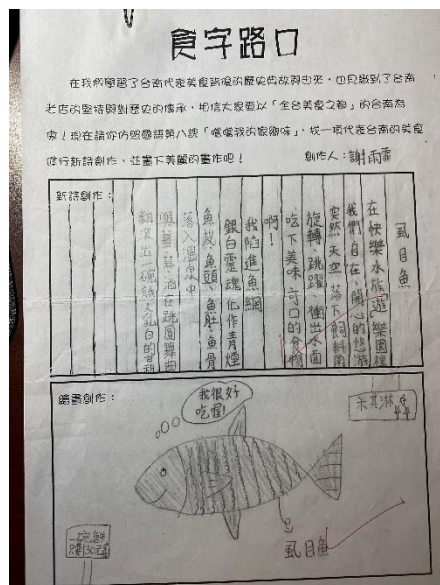 食字路口
在我們學習了台南代表美食背後的歷史典故與由來，也見識到了台南
老店的堅持與對歷史的傳承，相信大家更以「全台美食之都」的台南為
榮！現在請你仿照國語第八課「嚐嚐我的家鄉味」，找一項代表台南的美食
進行新詩創作，並畫下美麗的畫作吧！
創作人：謝雨霏
新詩創作：
虱目魚
在快樂水族遊樂園裡
我們自在、開心的悠游
突然天空落下飼料雨
旋轉、跳躍、衝出水面
吃下美味、可口的食物
啊！
我陷進魚網
銀白靈魂化作青煙
魚皮、魚頭、魚肚、魚骨
落入溫泉中
與薑、蒜、酒在跳圓舞曲
翻滾出一碗誘人乳白的
繪畫創作：
我很好
吃喔！
米其淋
虱目魚
一碗鮮
30元